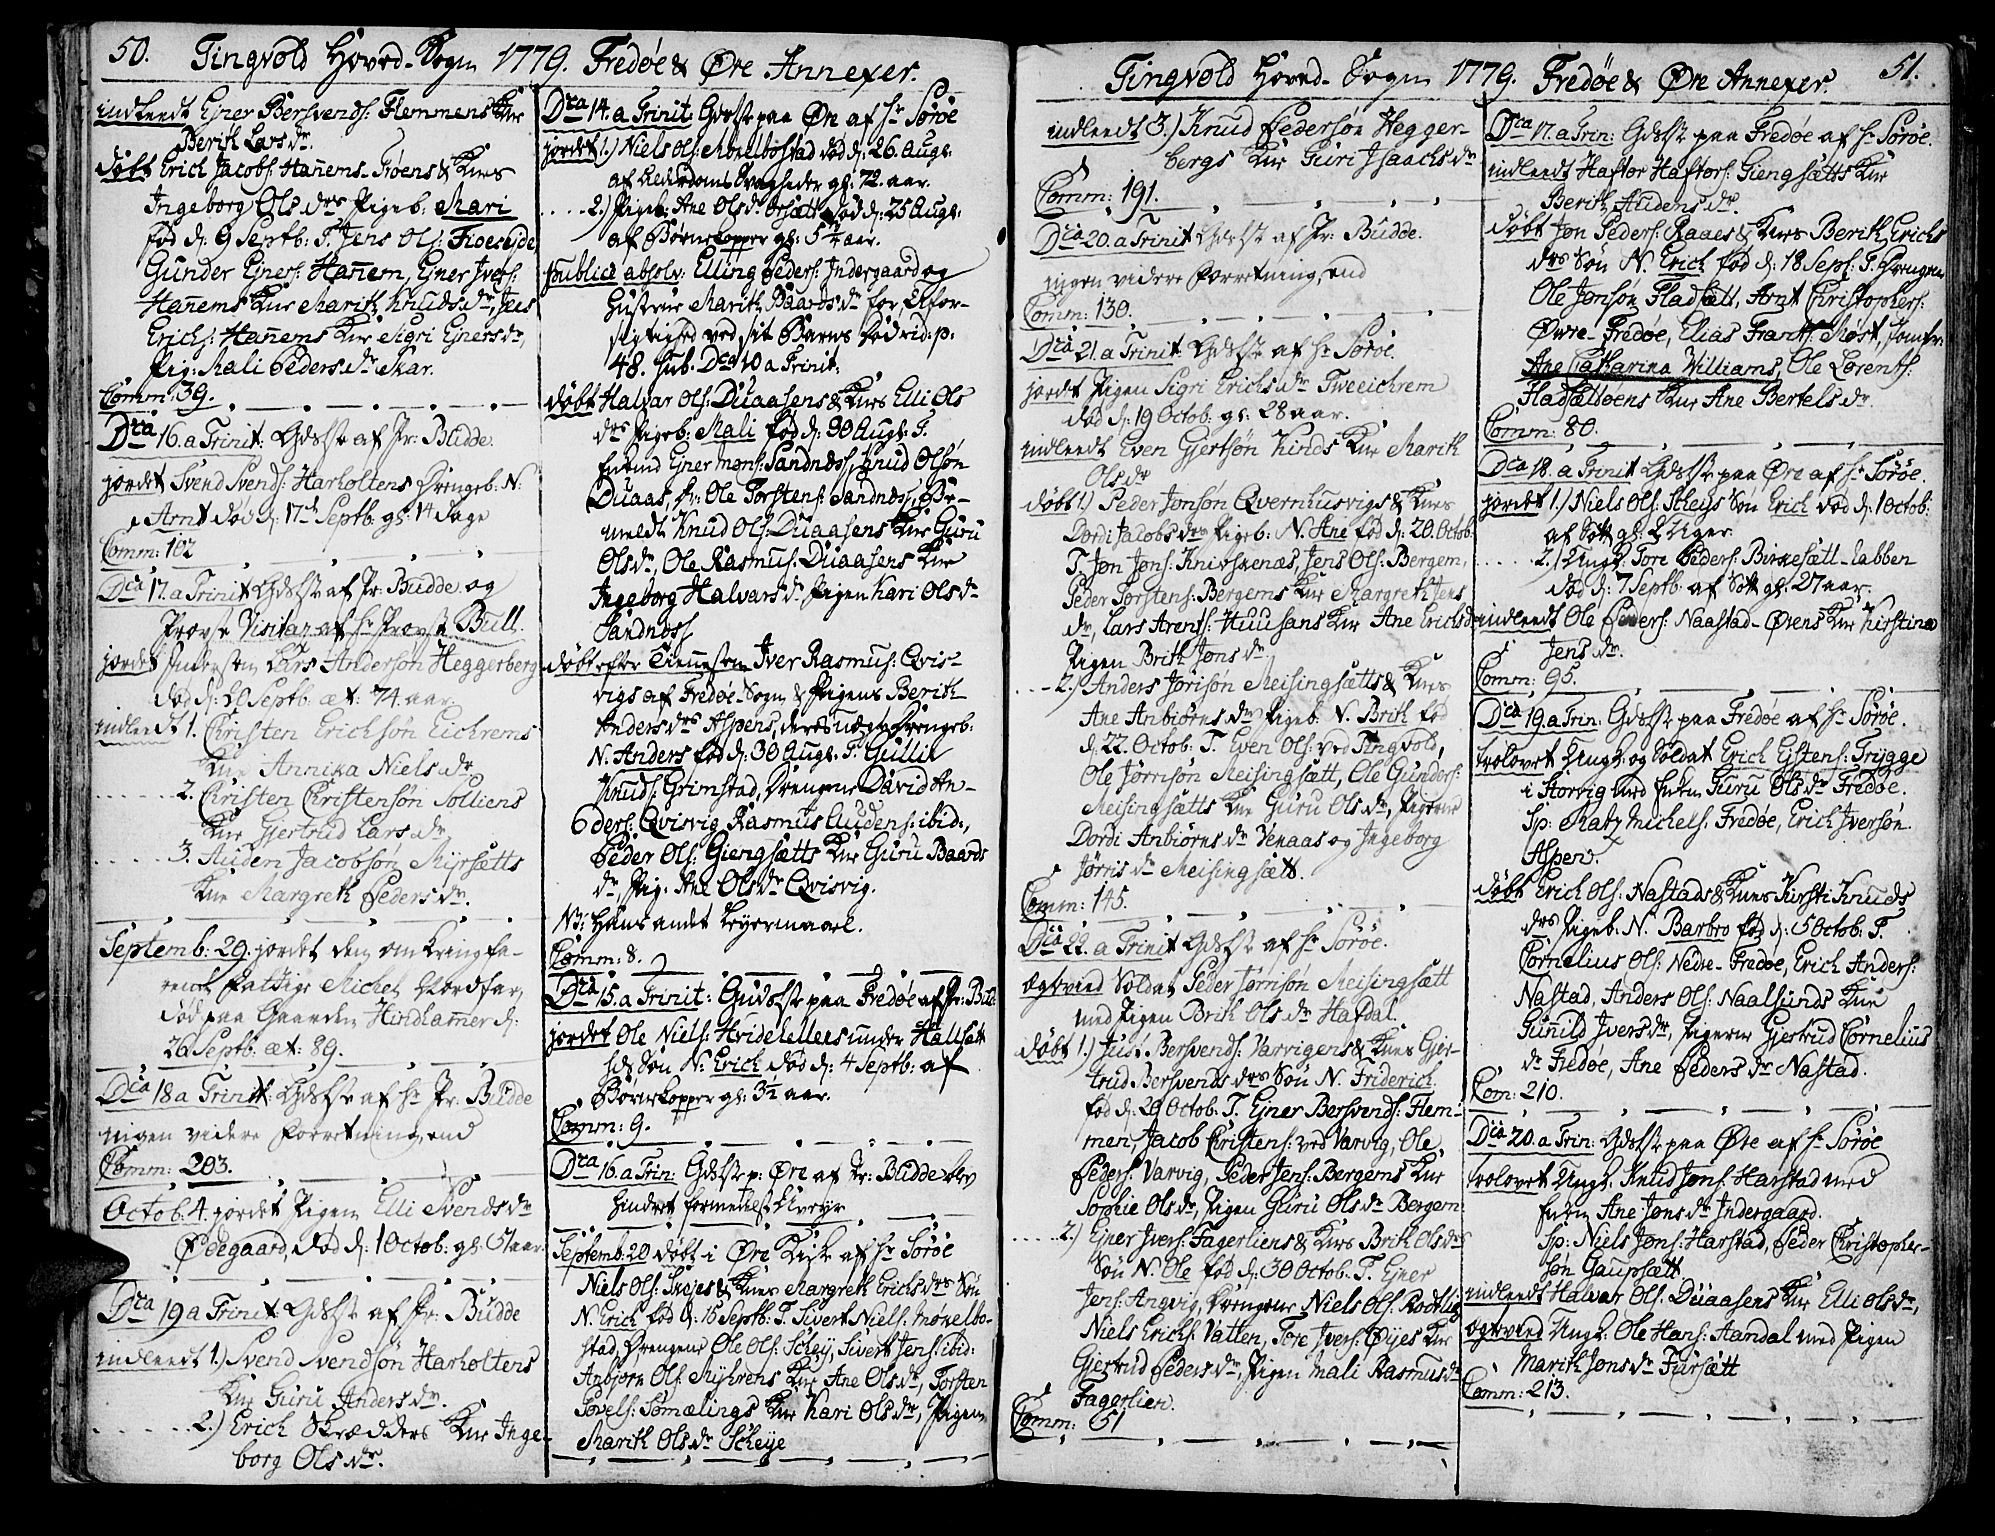 50. Tingvold Hoved-Sogn 1779. Fredøe & Øre Annexer.
indleedt Ejner Bersvends: Flemmens Kne
Berith Lars dr.
døbt Erich Jacobs: Hanems-Trøens & Knes
Ingeborg Ols drs Pigeb: Mari
fød d: 9 Septb: T. Jens Ols: Floeseide
Gunder Ejners: Hanem, Ejner Ivers:
Hanems Kne Marith Knuds dr, Jens
Erichs: Hanems Kne Sigri Ejners dr,
Pig: Mali Peders dr Skar.
Comm: 39.
Dca 16. a Trinit: Gdstte af Pr: Budde.
jordet Svend Svends: Harholtens Drengeb: N:
Arnt død d: 17d Septb. gl: 14 dage
Comm: 102
Dca 17. a Trinit Gdstte af Pr: Budde og
Provste Visitaz af Hr Provst Bull.
jordet Lars Anderson Heggerberg
død d: Septb: æt: 74 aar
indleedt 1. Christen Erichsøn Eichrems
Kne Annika Niels dr
2. Christen Christensøn Solliens
Kne Gjertrud Lars dr
3. Auden Jacobsøn Myrsætts
Kne Margreth Peders dr.
Septemb: 29. jordet den omkringfa-
rende fattige Michel Nordfar,
død paa Gaarden Hindhamer d:
26 Septb: æt: 89.
Dca 18 a Trinit: Gdstte af Hr Pr: Budde
ingen videre Forretning, end
Comm: 203.
Octob: 4. jordet Pigen Elli Svends dr
Ødegaard, død d: 1 Octob: gl: 67 aar.
Dca 19 a Trinit Gdstte af Pr: Budde
indleedt 1.) Svend Svendsøn Harholtens
Kne Guru Anders dr.
2.) Erich Skrædders Kne Inge-
borg Ols dr.
Dca 14. a Trinit: Gdstte paa Øre af Hr Sørøe
jordet 1.) Niels Ols: Monelbostad død d: 26 Aug:
af Alderdoms Svagheder gl: 72. aar.
2.) Pigeb: Ane Ols dr Orsætt død d: 25 Aug:
af Børnekopper gl: 5 1/2 aar.
publice absolv: Elling Peders: Indergaard og
Hustrue Marith Baards dr for Ufor-
sigtighed ved sit Barns død vid: p:
48. sub. Dca 10 a Trinit:
døbt Halvar Ols: Duaasens & Knes Elli Ols
drs Pigeb: Mali fød d: 30 Aug: T.
Enkmd Ejner Mons: Sandness, Knud Olsøn
Duaas, Ole Torstens: Sandness, Be-
meldte Knud Ols: Duaasens Kne Guru
Ols dr, Ole Rasmus: Duaasens Kne
Ingeborg Halvars dr Pigen Kari Ols dr
Sandness
døbt efter Tienesten Iver Rasmus: Qvis-
vigs af Fredøe-Sogn & Pigens Berith
Anders drs Aspens, deres uægte Drengeb:
N. Anders fød d: 30 Aug: T. Gullik
Knuds: Grimstad, Drengene David An-
ders: Qvisvig, Rasmus Audens: ibid:,
Peder Ols: Giengsætts Kne Guru Baards
dr, Pig: Ane Ols dr Qvisvig.
NB: Hans andet Leyermaal.
Comm: 8.
Dca 15. a Trinit: Gudstte paa Fredøe af Pr: Bud
jordet Ole Niels: Hvidehellers under Hallsætt
Søn N: Erich død d: 4 Septb: af
Børnekopper gl: 3 1/2 aar.
Comm: 9.
Dca 16. a Trin: Gdstte p: Øre af Pr: Budde blev
hindret formedelst Uveyr
Septemb: 20 døbt i Øre Kirke af Hr Sørøe
Niels Ols: Skeyes & Knes Margreth Erichs drs Søn
N. Erich fød d: 15 Septb: T. Sivert Niels: Monelbo-
stad, Drengene Ole Ols: Schey, Sivert Jens: ibid:
Anbjørn Ols: Myhrens Kne Ane Ols dr, Torsten
Sovels: Sømælings Kne Kari Ols dr, Pigen
Marith Ols dr Scheye
Tingvold Hoved-Sogn 1779. Fredøe & Øre Annexer. 51.
indleedt 3.) Knud Pedersøn Hegger-
bergs Kne Guri Isaachs dr
Comm: 191.
Dca 20. a Trinit Gdstte af Pr: Budde.
ingen videre Forretning, end
Comm: 130.
Dca 21. a Trinit: Gdstte af Hr Sørøe.
jordet Pigen Sigri Erichs dr Tweeichrem
død d: 19 Octob: gl: 28 aar.
indleedt Even Gjertsøn Kinds Kne Marith
Ols dr
døbt 1.) Peder Jonsøn Qvernhusvigs & Knes
Dordi Jacobs drs Pigeb: N. Ane fød d: 20. Octob:
T. Jon Jons: Knivskenæs, Jens Ols: Bergem,
Peder Torstens: Bergems Kne Margreth Jens
dr, Lars Arents: Huusans Kne Ane Erichs dr
Pigen Brith Jons dr
2.) Anders Jorisøn Meisingsætts & Knes
Ane Anbiørns dr Pigeb: N. Brith fød
d: 22. Octob: T. Even Ols: ved Tingvold,
Ole Jørrisøn Meisingsætt, Ole Gunders:
Meisingsætts Kne Guru Ols dr, Pigerne
Dordi Anbiørns dr Venaas og Ingeborg
Jørris dr Meisingsætt.
Comm: 145.
Dca 22. a Trinit Gdstte af Hr Sørøe.
ægtevied Soldat Peder Jørrisøn Meisingsætt
med Pigen Brith Ols dr Hafdal.
døbt 1.) Just Bersvends: Varvigens & Knes Gjer-
trud Bersvends drs Søn N. Friderich
fød d: 29 Octob: T. Ejner Bersvends: Flem-
men, Jacob Christens: ved Varvig, Ole
Peders: Varvig, Peder Jens: Bergems Kne
Sophie Ols dr, Pigen Guru Ols dr Bergem
2.) Ejner Ivers: Fagerliens & Knes Brith Ols drs
Søn N. Ole fød d: 30 Octob. T. Ejner
Jens: Angvig, Drengene Niels Ols: Rodtlig
Niels Erichs: Vatten, Tore Ivers: Øyes Kne
Gjertrud Peders dr, Pigen Mali Rasmus dr
Fagerlien.
Comm: 51
Dca 17. a Trin: Gdstte paa Fredøe af Hr Sørøe.
indleedt Haftor Haftors: Giengsætts Kne
Berith Audens dr.
døbt Jon Peders: Raaes & Knes Berith Erichs
drs Søn N. Erich fød d: 18 Sept: T. Drengene
Ole Jonsøn Fladsætt, Arnt Christophers:
Øvre-Fredøe, Elias Frants: Røst, Jomfr:
Ane Catharina Williams, Ole Lorents:
Hadsætøens Kne Ane Bertels dr.
Comm: 80.
Dca 18. a Trinit Gdstte paa Øre af Hr Sørøe.
jordet 1.) Niels Ols: Scheys Søn Erich død d: 1 Octob:
af Sott gl: 2 Uger.
2.) Ungk: Tore Peders: Birkesætt-labben
død d: 7 Septb: af Sott gl: 27 aar.
indleedt Ole Peders: Naastad-Ørens Kne Kirstina
Jens dr.
Comm: 95.
Dca 19. a Trin: Gdstte paa Fredøe af Hr Sørøe.
trolovet Ungk: og Soldat Erich Estens: Trygge
i Storvig med Enken Guru Ols dr Fredøe.
Sp: Matz Michels: Fredøe, Erich Iversøn
Aspen.
døbt Erich Ols: Nastads & Knes Kirsti Knuds
drs Pigeb: N. Barbro fød d: 5 Octob: T.
Cornelius Ols: Nedre-Fredøe, Erich Anders:
Nastad, Anders Ols: Naalsunds Kne
Gunild Ivers dr, Pigerne Gjertrud Cornelius
dr Fredøe, Ane Peders dr Nastad.
Com: 210.
Dca 20. a Trin: Gdstte paa Øre af Hr Sørøe
trolovet Ungk: Knud Jons: Harstad med
Enken Ane Jons dr Indergaard.
Sp: Niels Jons: Harstad, Peder Christopher-
søn Gaupsætt
indleedt Halvar Ols: Duaasens Kne Elli Ols dr,
ægtevied Ungk: Ole Hans: Aandal med Pigen
Marith Jons dr Fursætt
Comm: 213.